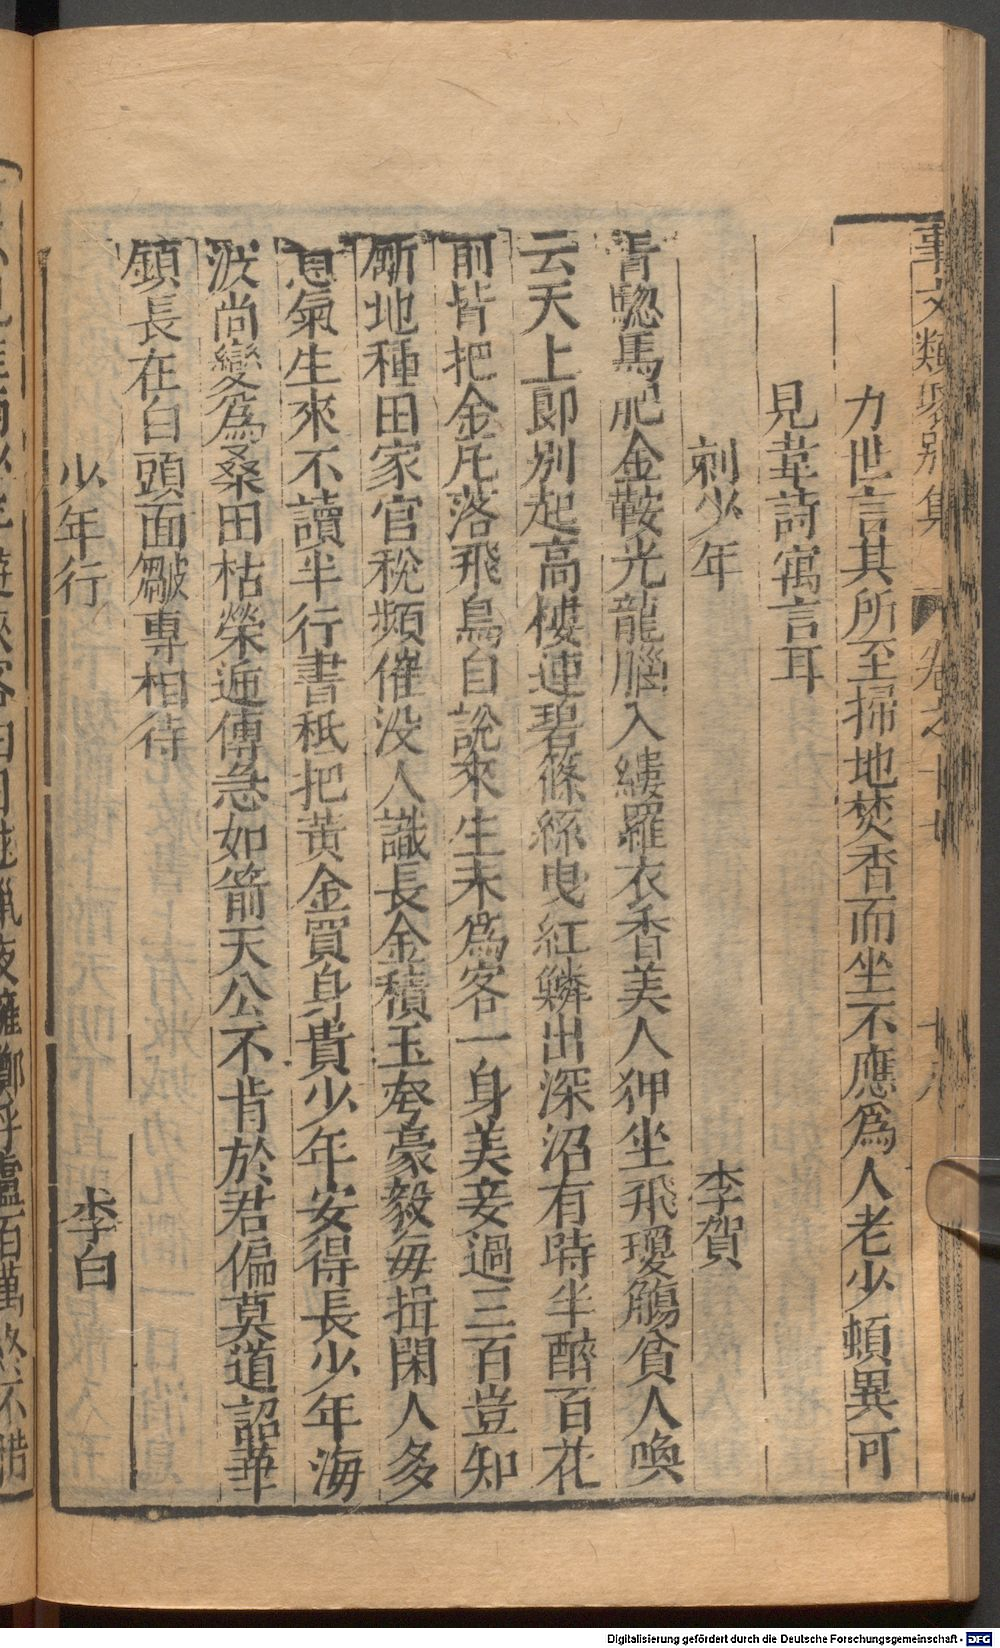 事文類聚別集 卷之十七 十八
力世言其所至掃地焚香而坐不應爲人老少頓異可
見韋詩寓言耳
刺少年 李賀
青驄馬肥金鞍光龍腦入縷羅衣香美人狎坐飛瓊觴貧人喚
云天上郎別起高樓連碧篠絲曳紅鱗出深沼有時半醉百花
前背把金丸落飛鳥自說來生未爲客一身美妾過三百豈知
斸地種田家官稅頻催没人識長金積玉夸豪毅每揖閑人多
意氣生來不讀半行書秖把黃金買身貴少年安得長少年海
波尚變爲桑田枯榮遞傳急如箭天公不肯於君偏莫道韶華
鎮長在白頭面皺專相待
少年行 李白